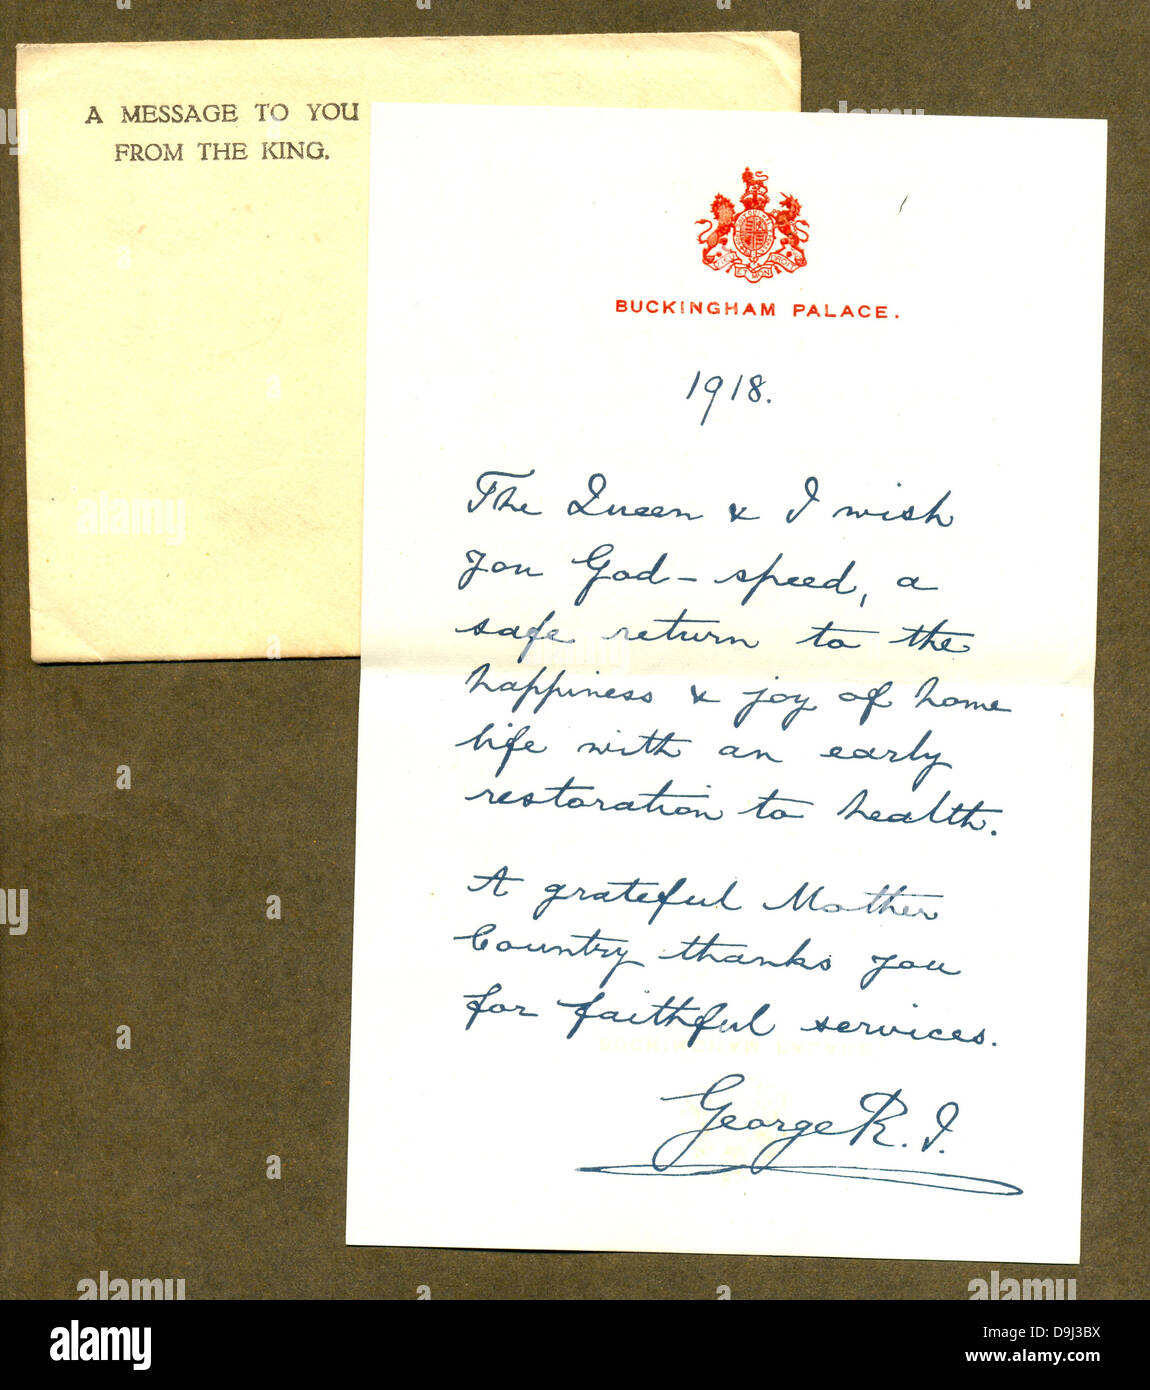 A MESSAGE TO YOU
FROM THE KING.
BUCKINGHAM PALACE.
1918.
The Queen & I wish
you God-speed, a
safe return to the
happiness & joy of home
life with an early
restoration to health.
A grateful Mother
Country thanks you
for faithful services.
George R.I.
alamy
Image ID: D9J3BX
www.alamy.com